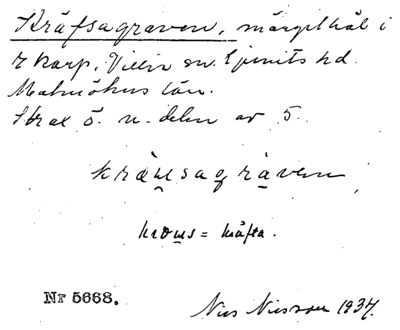 Kräfsagraven, märgelhål i
r Karp, Villie sn. Ljunits hd.
Malmöhus län.
Strax ö. n. delen av 5.
kräu̯sagrāven
krous = kräfta.
Nr 5668.
Nils Nilsson 1937.